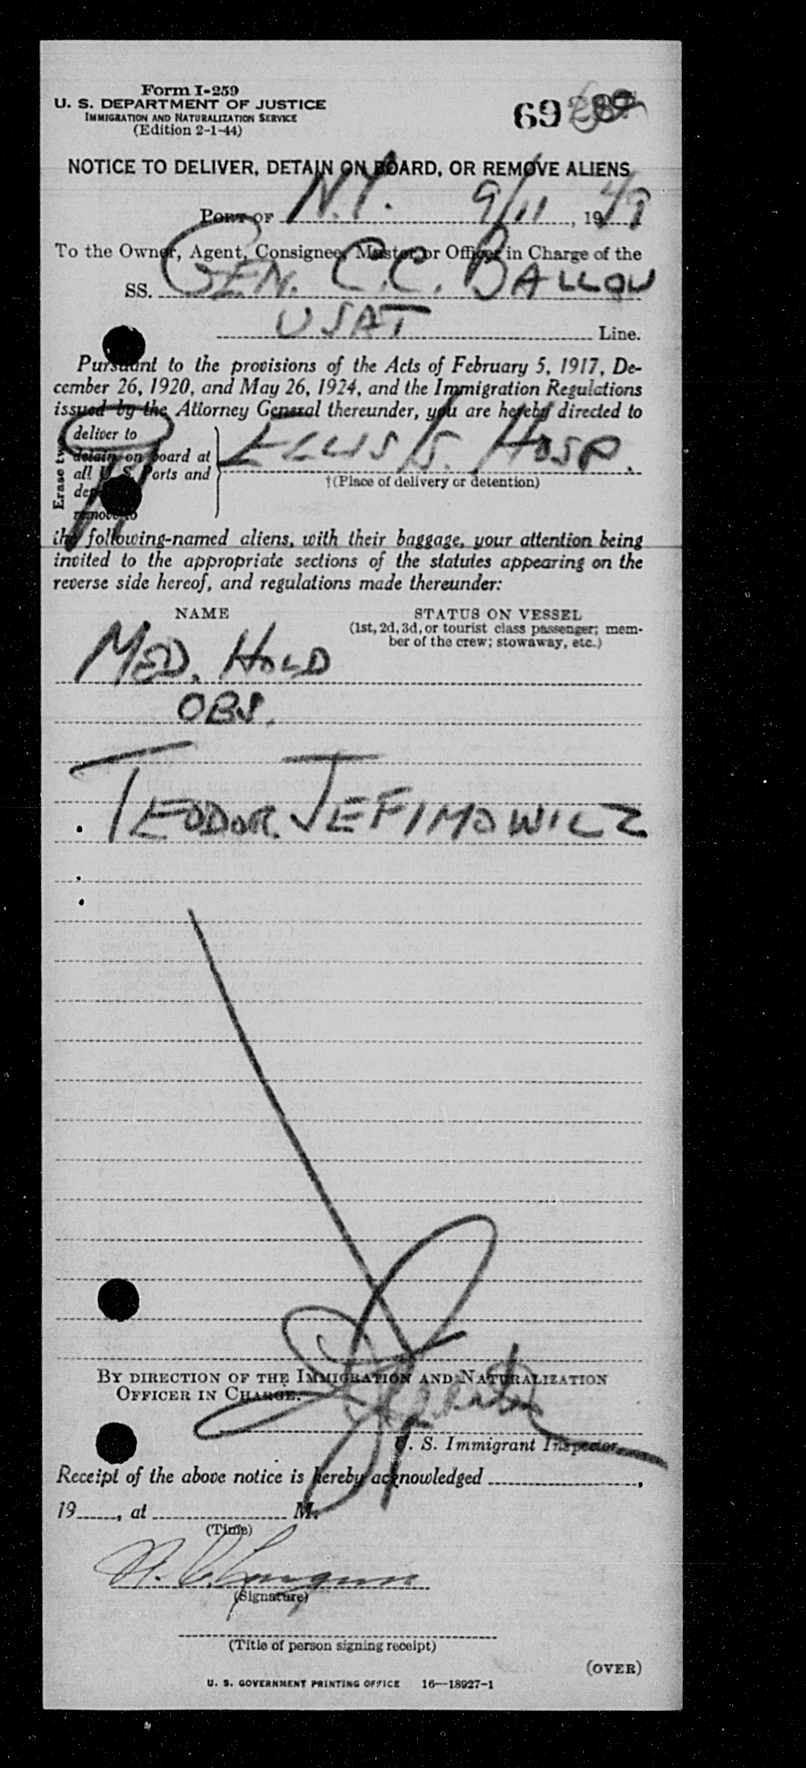 Form I-259
U. S. DEPARTMENT OF JUSTICE
IMMIGRATION AND NATURALIZATION SERVICE
(Edition 2-1-44)
69
NOTICE TO DELIVER, DETAIN ON BOARD, OR REMOVE ALIENS
PORT OF N.Y. 9/11, 1949
To the Owner, Agent, Consignee, Master, or Officer in Charge of the
SS. GEN. C.C. BALLOU
USAT Line.
Pursuant to the provisions of the Acts of February 5, 1917, De-
cember 26, 1920, and May 26, 1924, and the Immigration Regulations
issued by the Attorney General thereunder, you are hereby directed to
Erase two
deliver to
detain on board at
all U. S. Ports and
remove to
ELLIS IS. HOSP.
†(Place of delivery or detention)
the following-named aliens, with their baggage, your attention being
invited to the appropriate sections of the statutes appearing on the
reverse side hereof, and regulations made thereunder:
NAME STATUS ON VESSEL
(1st, 2d, 3d, or tourist class passenger; mem-
ber of the crew; stowaway, etc.)
MED. HOLD
OBS.
TEODOR JEFIMOWICZ
BY DIRECTION OF THE IMMIGRATION AND NATURALIZATION
OFFICER IN CHARGE.
U. S. Immigrant Inspector.
Receipt of the above notice is hereby acknowledged ,
19 , at M.
(Time)
(Signature)
(Title of person signing receipt)
(OVER)
U. S. GOVERNMENT PRINTING OFFICE 16—18927-1